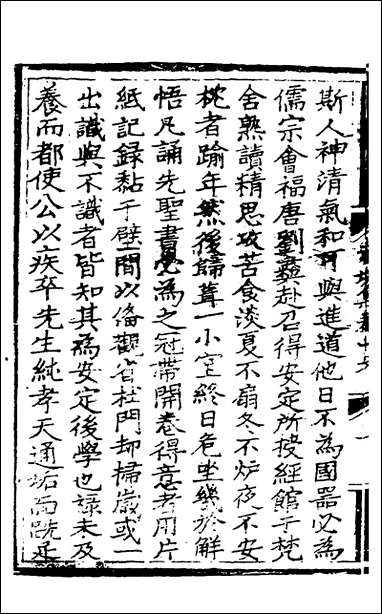 斯人神清氣和可與進道他日不為國器必為
儒宗會福唐劉彝赴召得安定所授經館于梵
舍熟讀精思攻苦食淡夏不扇冬不炉夜不安
枕者踰年然後歸葺一小室終日危坐幾於解
悟凡誦先聖書必為之冠帶開卷得意者用片
紙記録黏于壁間以俻觀省杜門却掃歳或一
出識與不識者皆知其為安定後學也禄未及
養而都使公以疾卒先生純孝天通垢面跣足